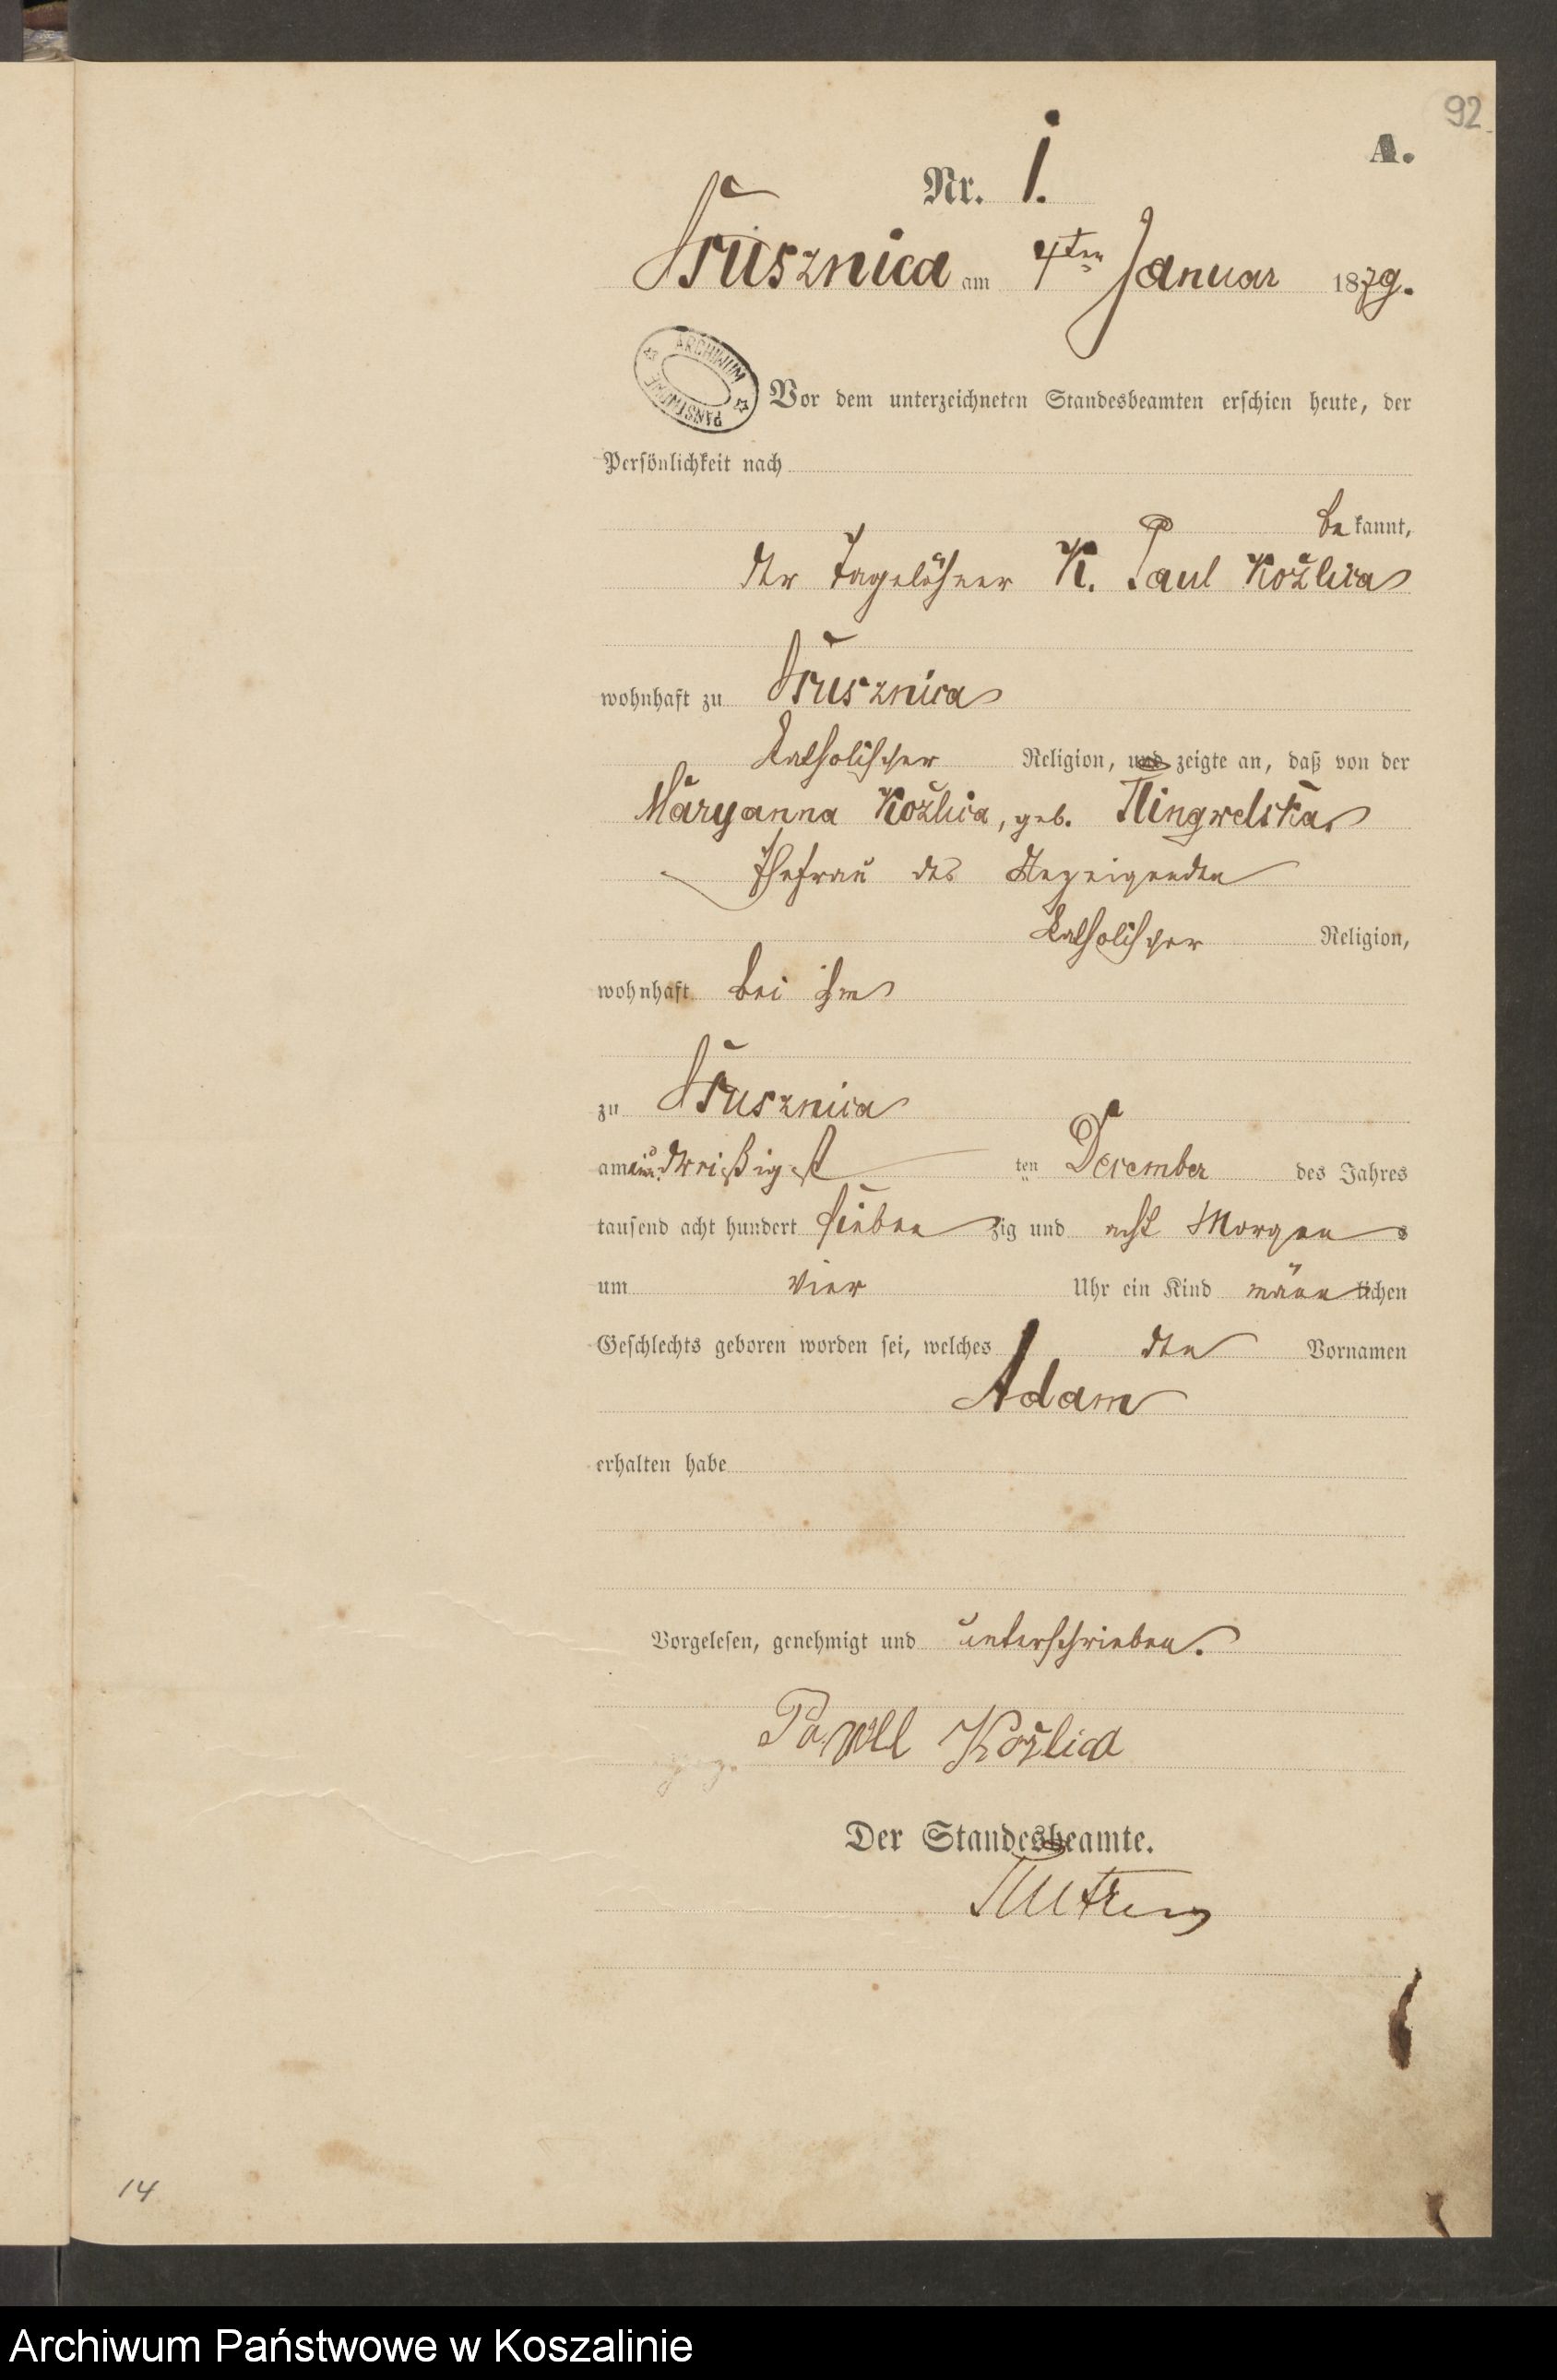 92
A.
Nr. 1.
Prusznica am 4ten Januar 1879.
ARCHIWUM PAŃSTWOWE
Vor dem unterzeichneten Standesbeamten erschien heute, der
Persönlichkeit nach
be kannt,
der Tagelöhner K. Paul Kožlica
wohnhaft zu Prusznica
katholischer Religion, und zeigte an, daß von der
Maryanna Kožlica, geb.
Ehefrau des Anzeigenden
katholischer Religion,
wohnhaft bei ihm
zu Prusznica
am ein u. dreißigst ten December des Jahres
tausend acht hundert sieben zig und acht Morgen s
um vier Uhr ein Kind männ lichen
Geschlechts geboren worden sei, welches den Vornamen
Adam
erhalten habe
Vorgelesen, genehmigt und unterschrieben.
Pawell Kožlica
Der Standesbeamte.
14
Archiwum Państwowe w Koszalinie